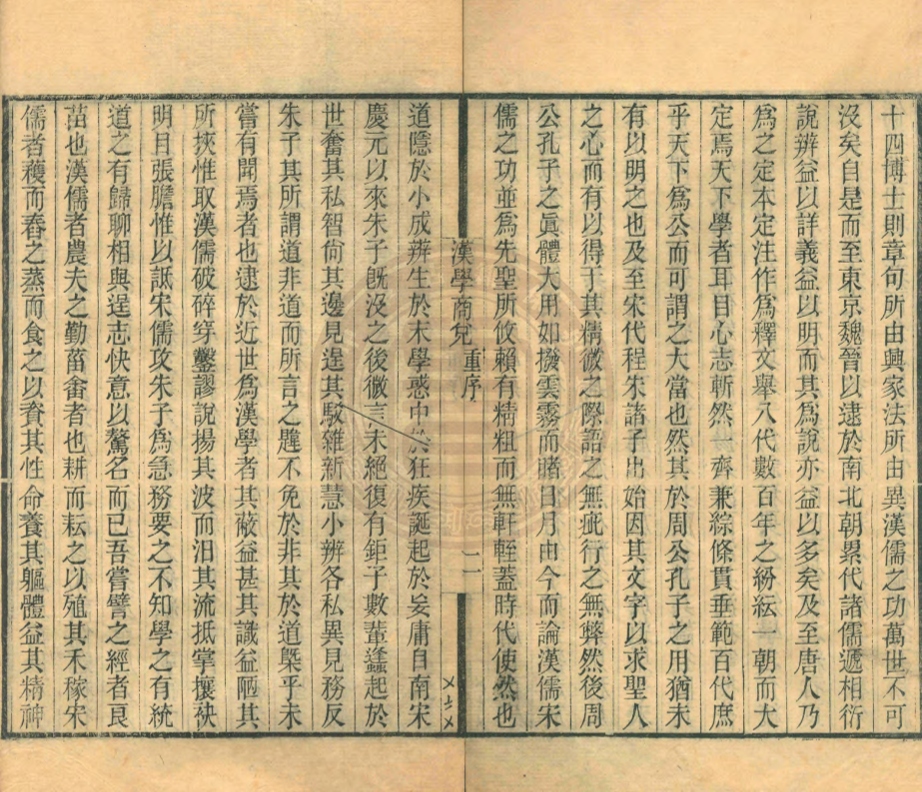 十四博士則章句所由興家法所由異漢儒之功萬世不可
沒矣自是而至東京魏晉以逮於南北朝累代諸儒遞相衍
說辨益以詳義益以明而其爲說亦益以多矣及至唐人乃
爲之定本定注作爲釋文舉八代數百年之紛紜一朝而大
定焉天下學者耳目心志斬然一齊兼綜條貫垂範百代庶
乎天下爲公而可謂之大當也然其於周公孔子之用猶未
有以明之也及至宋代程朱諸子出始因其文字以求聖人
之心而有以得于其精微之際語之無疵行之無弊然後周
公孔子之眞體大用如撥雲霧而睹日月由今而論漢儒宋
儒之功並爲先聖所攸賴有精粗而無軒輊蓋時代使然也
漢學商兌 重序 二
道隱於小成辨生於末學惑中於狂疾誕起於妄庸自南宋
慶元以來朱子旣沒之後微言未絕復有鉅子數輩蠭起於
世奮其私智尙其邊見逞其駁雜新慧小辨各私異見務反
朱子其所謂道非道而所言之韙不免於非其於道槩乎未
嘗有聞焉者也逮於近世爲漢學者其蔽益甚其識益陋其
所挾惟取漢儒破碎穿鑿謬說揚其波而汨其流抵掌攘袂
明目張膽惟以詆宋儒攻朱子爲急務要之不知學之有統
道之有歸聊相與逞志快意以驁名而已吾嘗譬之經者良
苗也漢儒者農夫之勤菑畬者也耕而耘之以殖其禾稼宋
儒者穫而舂之蒸而食之以資其性命養其軀體益其精神